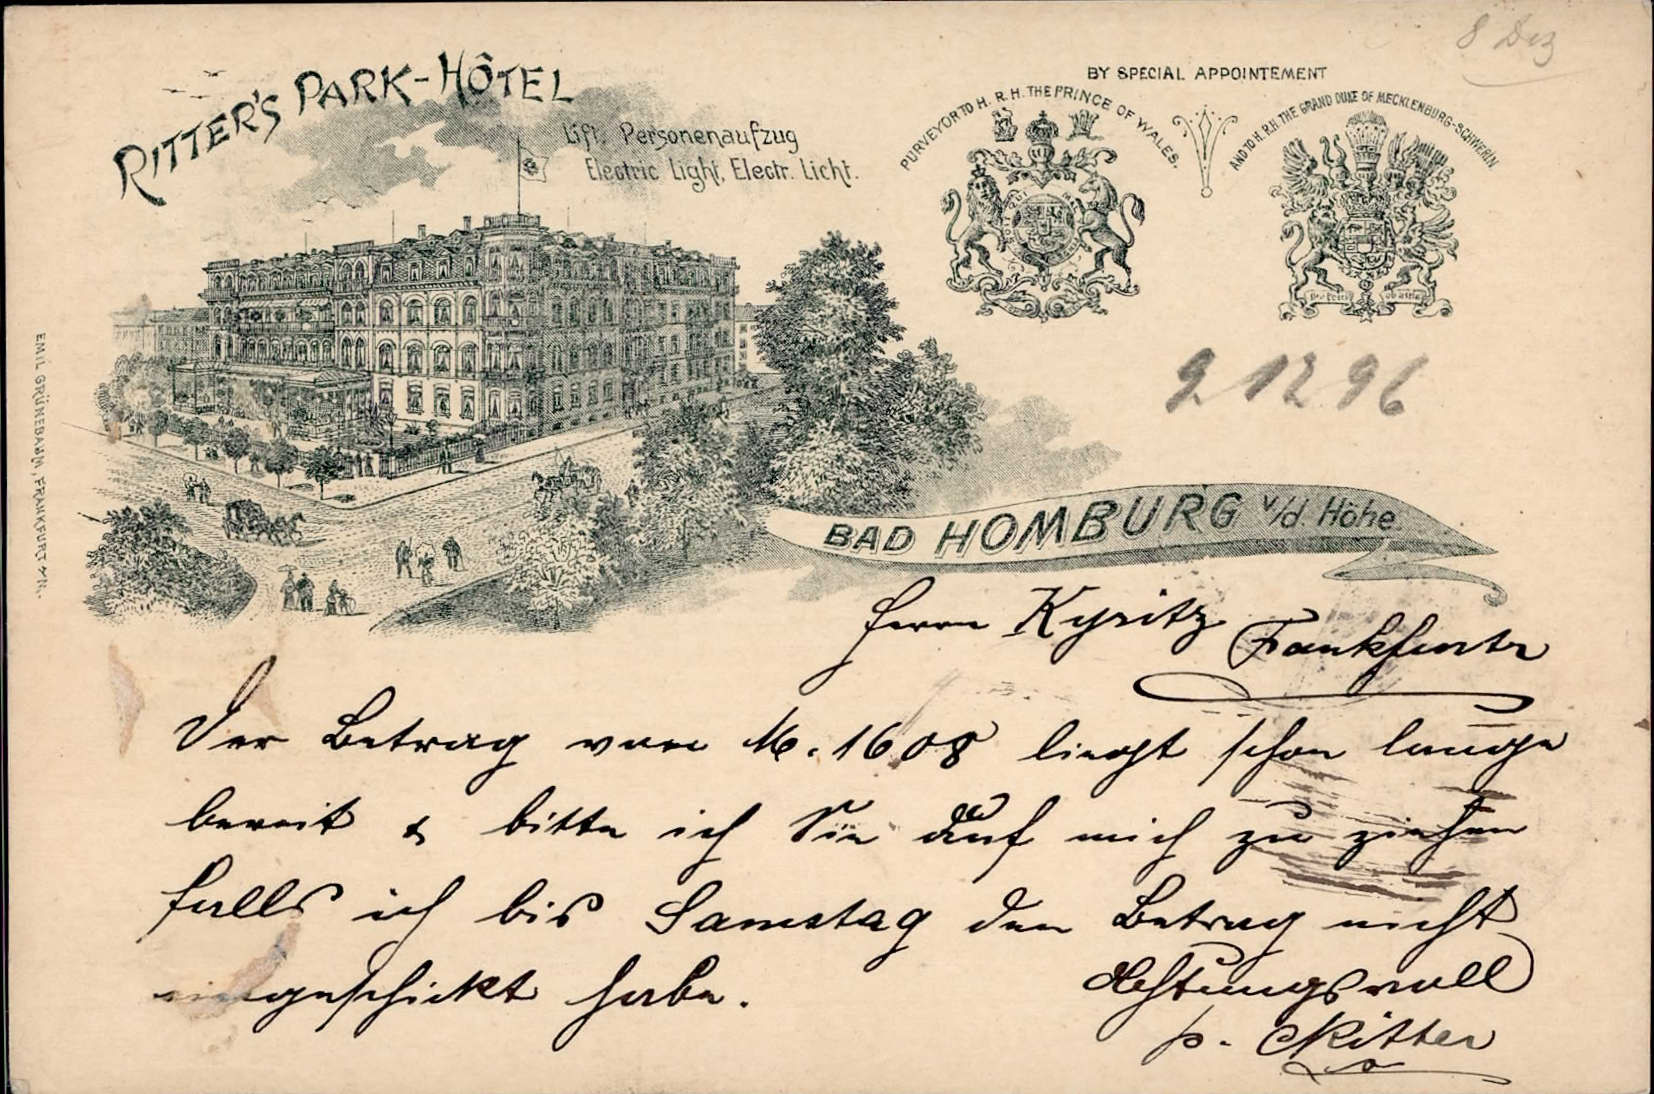 8 Dez
RITTER'S PARK-HÔTEL
Lift, Personenaufzug
Electric Light, Electr. Licht.
BY SPECIAL APPOINTEMENT
PURVEYOR TO H. R. H. THE PRINCE OF WALES.
AND TO H. R. H. THE GRAND DUKE OF MECKLENBURG-SCHWERIN
9 12 96
EMIL GRÜNEBAUM, FRANKFURT a/M.
BAD HOMBURG v/d. Höhe.
Herrn Kyritz Frankfurt
Der Betrag von M. 1608 liegt schon lange
bereit & bitte ich Sie auf mich zu ziehen
falls ich bis Samstag den Betrag nicht
eingeschickt habe.
Achtungsvoll
p. C Ritter